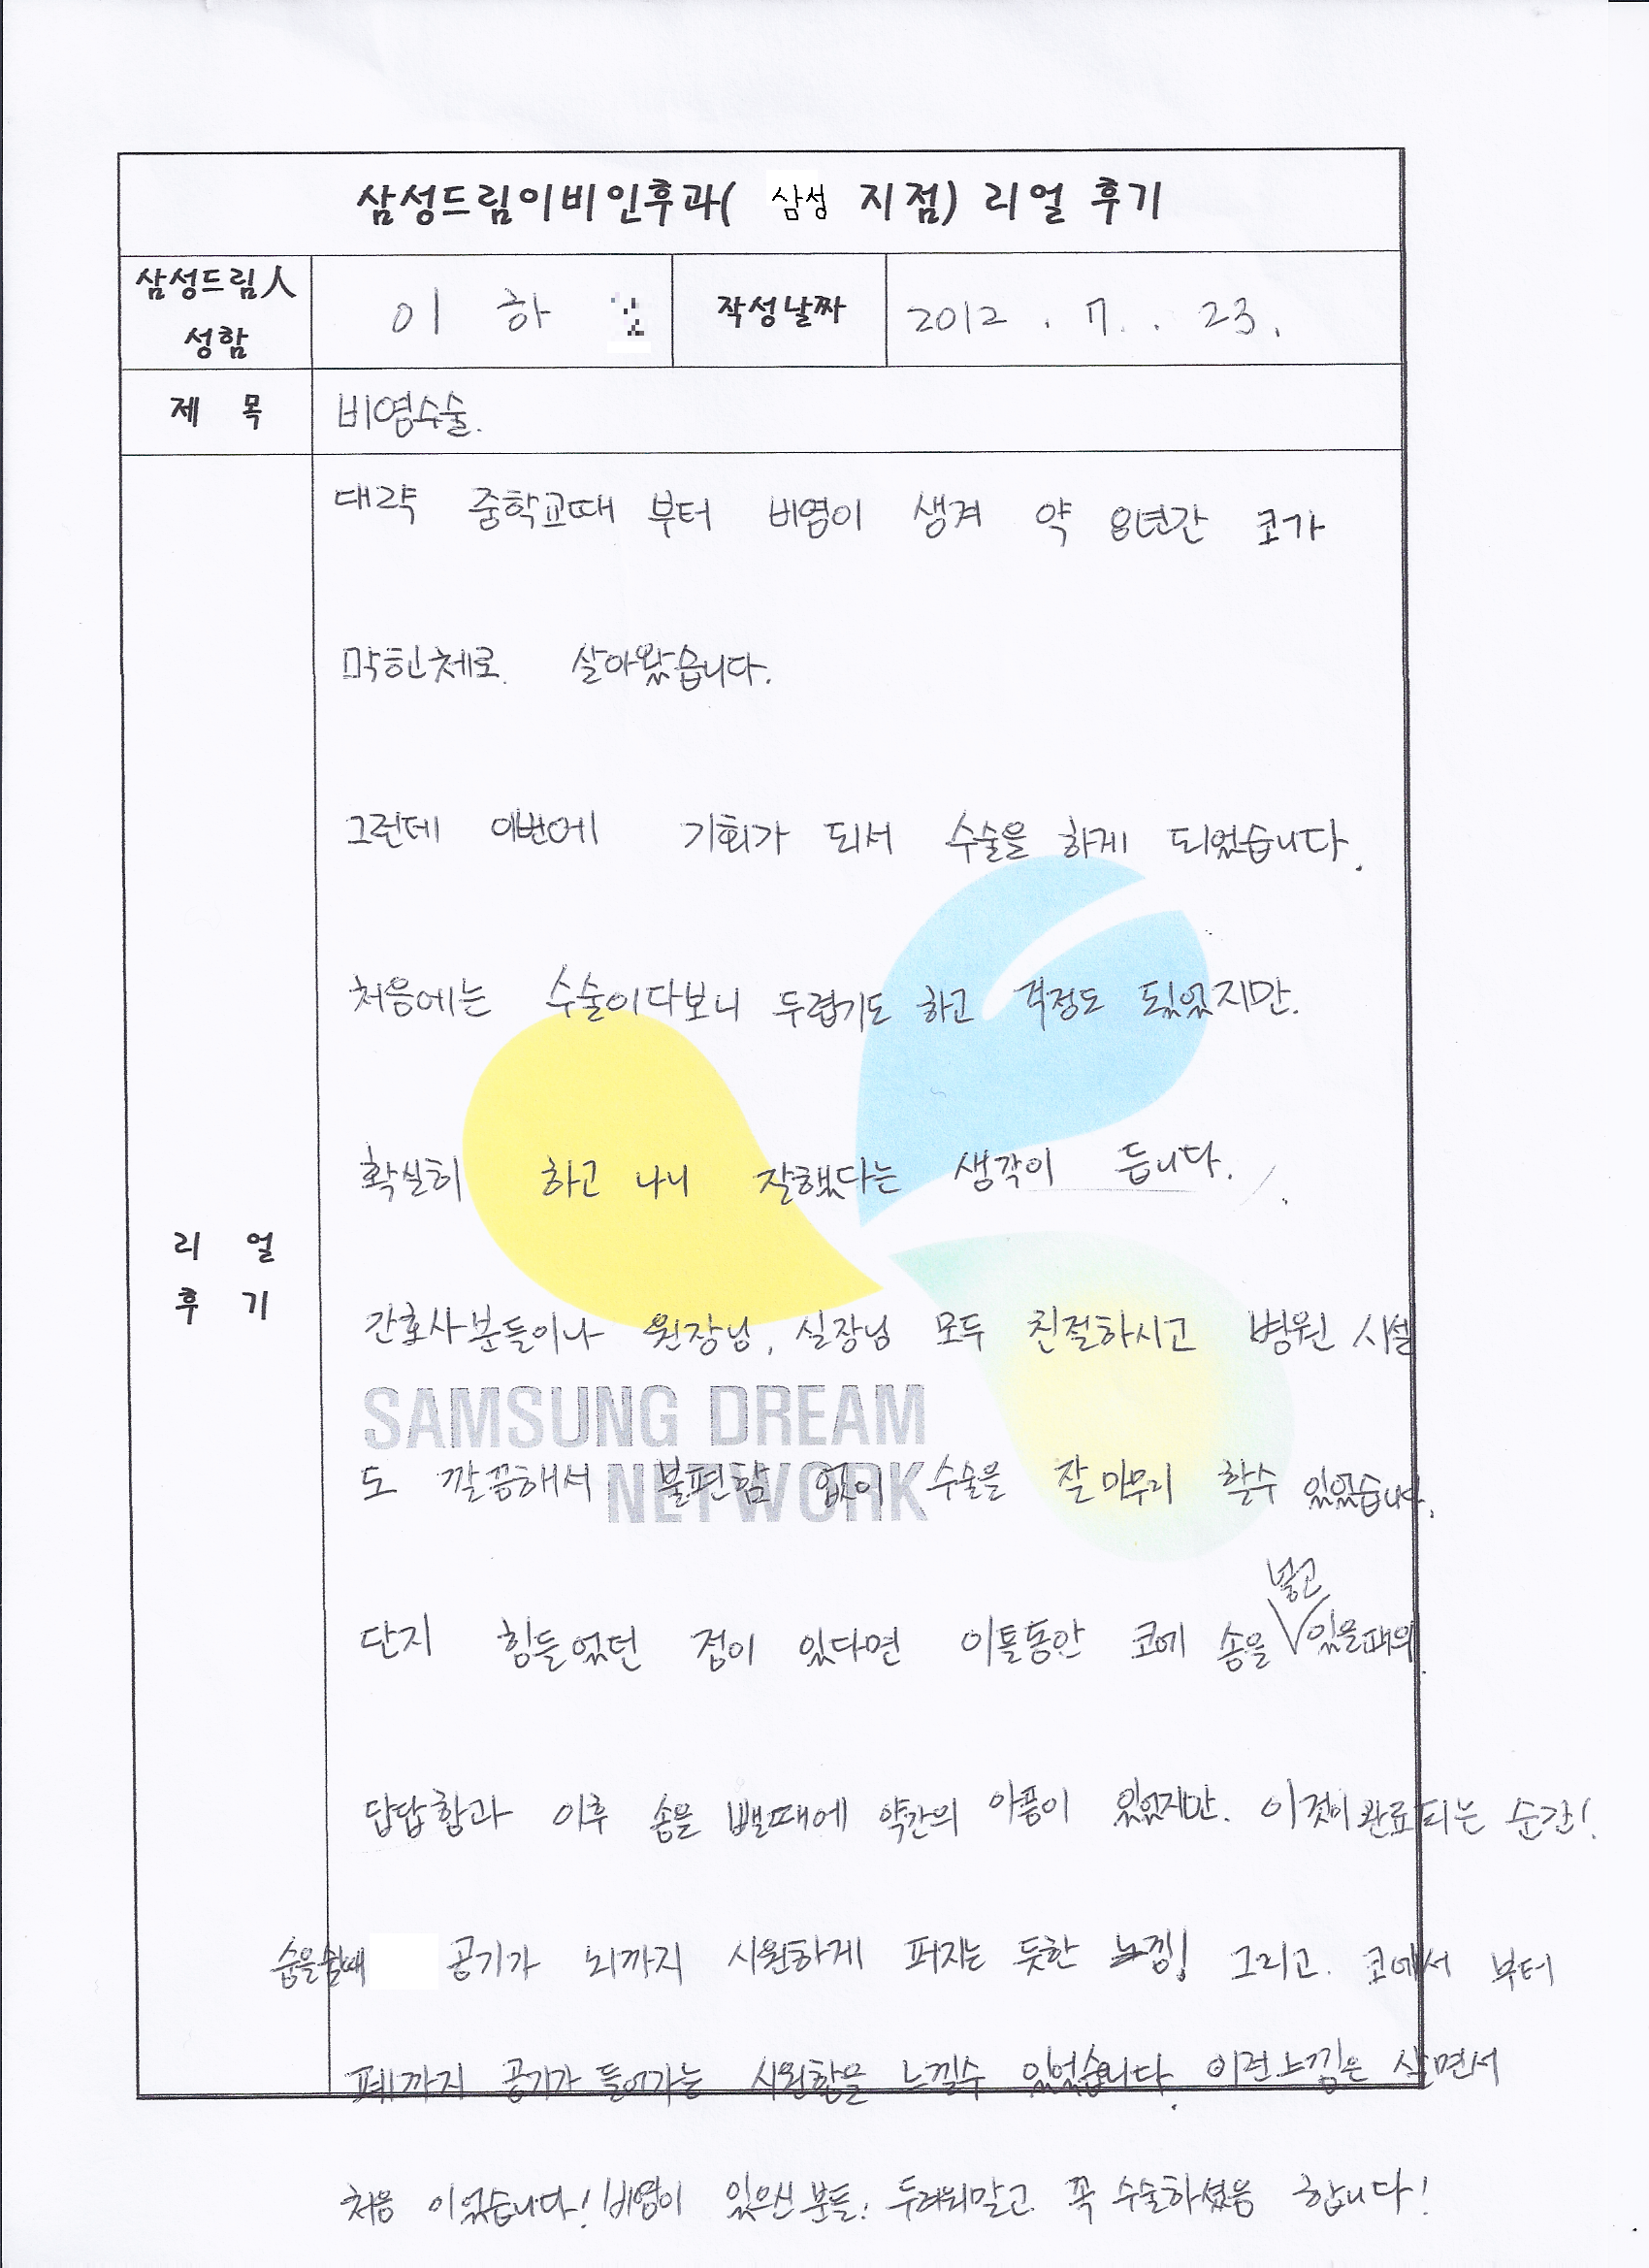 삼성드림이비인후과( 삼성 지점) 리얼 후기
삼성드림人
성함
이 하
작성날짜
2012. 7. . 23.
제 목
비염수술.
리 얼
후 기
대략 중학교때 부터 비염이 생겨 약 8년간 코가
막힌체로. 살아왔습니다.
그런데 이번에 기회가 되서 수술을 하게 되었습니다.
처음에는 수술이다보니 두렵기도 하고 걱정도 되었지만.
확실히 하고 나니 잘했다는 생각이 듭니다.
간호사분들이나 원장님, 실장님 모두 친절하시고 병원 시설
SAMSUNG DREAM
도 깔끔해서 불편함 없이 수술을 잘 마무리 할수 있었습니다.
NETWORK
넣고
단지 힘들었던 점이 있다면 이틀동안 코에 솜을 있을때의
답답함과 이후 솜을 뺄때에 약간의 아픔이 있었지만. 이것이 완료되는 순간!
숨을쉴때 공기가 뇌까지 시원하게 퍼지는 듯한 느낌! 그리고. 코에서 부터
폐까지 공기가 들어가는 시원함을 느낄수 있었습니다. 이런느낌은 살면서
처음 이었습니다! 비염이 있으신 분들! 두려워말고 꼭 수술하셨음 합니다!